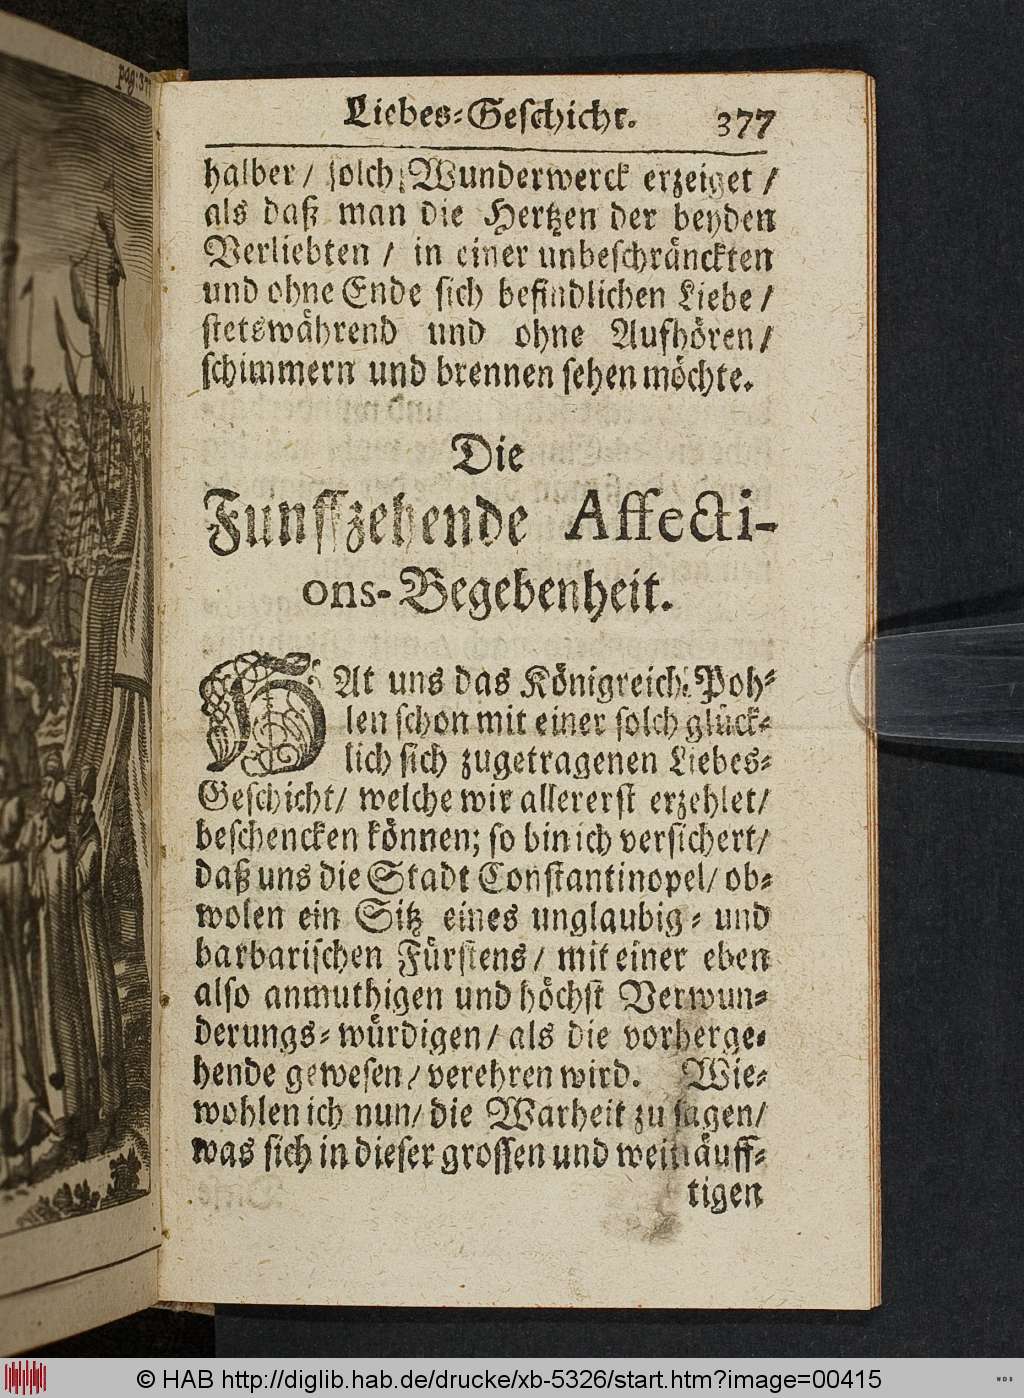 pag: 377
Liebes-Geschicht. 377
halber / solch Wunderwerck erzeiget /
als daß man die Hertzen der beyden
Verliebten / in einer unbeschränckten
und ohne Ende sich befindlichen Liebe /
stetswährend und ohne Aufhören /
schimmern und brennen sehen möchte.
Die
Funffzehende Affecti-
ons-Begebenheit.
HAt uns das Königreich Poh-
len schon mit einer solch glück-
lich sich zugetragenen Liebes-
Geschicht / welche wir allererst erzehlet /
beschencken können; so bin ich versichert /
daß uns die Stadt Constantinopel / ob-
wolen ein Sitz eines unglaubig- und
barbarischen Fürstens / mit einer eben
also anmuthigen und höchst Verwun-
derungs-würdigen / als die vorherge-
hende gewesen / verehren wird. Wie-
wohlen ich nun / die Warheit zu sagen /
was sich in dieser grossen und weitläuff-
tigen
© HAB http://diglib.hab.de/drucke/xb-5326/start.htm?image=00415
WDB